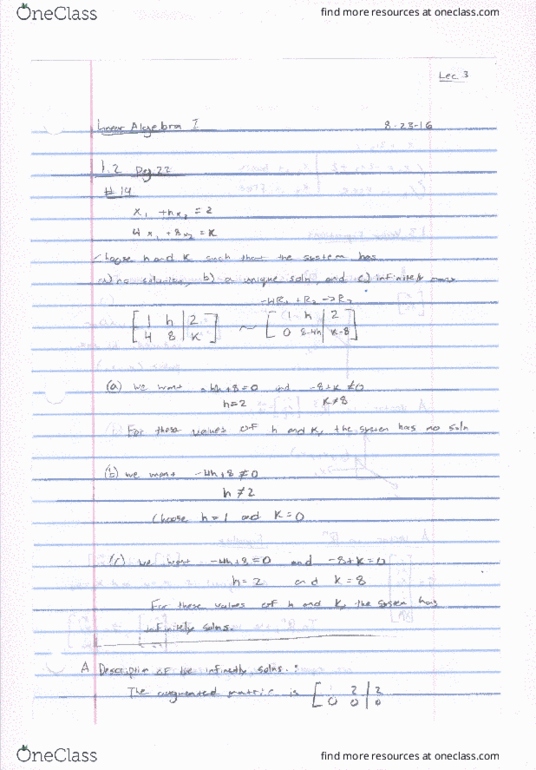 OneClass
find more resources at oneclass.com
Lec 3
Linear Algebra I 8-23-16
1.2 Pg. 22
#19
x₁ + hx₂ = 2
4x₁ + 8x₂ = K
Choose h and K such that the system has
a) no solution, b) a unique soln, and c) infinitely many
-4R₁ + R₂ → R₂
[1 h | 2 ~ [1 h | 2
4 8 | K] 0 8-4h | K-8]
(a) we want -4h+8=0 and -8+K≠0
h=2 K≠8
For these values of h and K, the system has no soln
(b) we want -4h+8≠0
h≠2
Choose h=1 and K=0
(c) we want -4h+8=0 and -8+K=0
h=2 and K=8
For these values of h and K, the system has
infinitely solns.
A Description of the infinitly solns.:
The augmented matrix is [1 2 | 2
0 0 | 0
OneClass
find more resources at oneclass.com